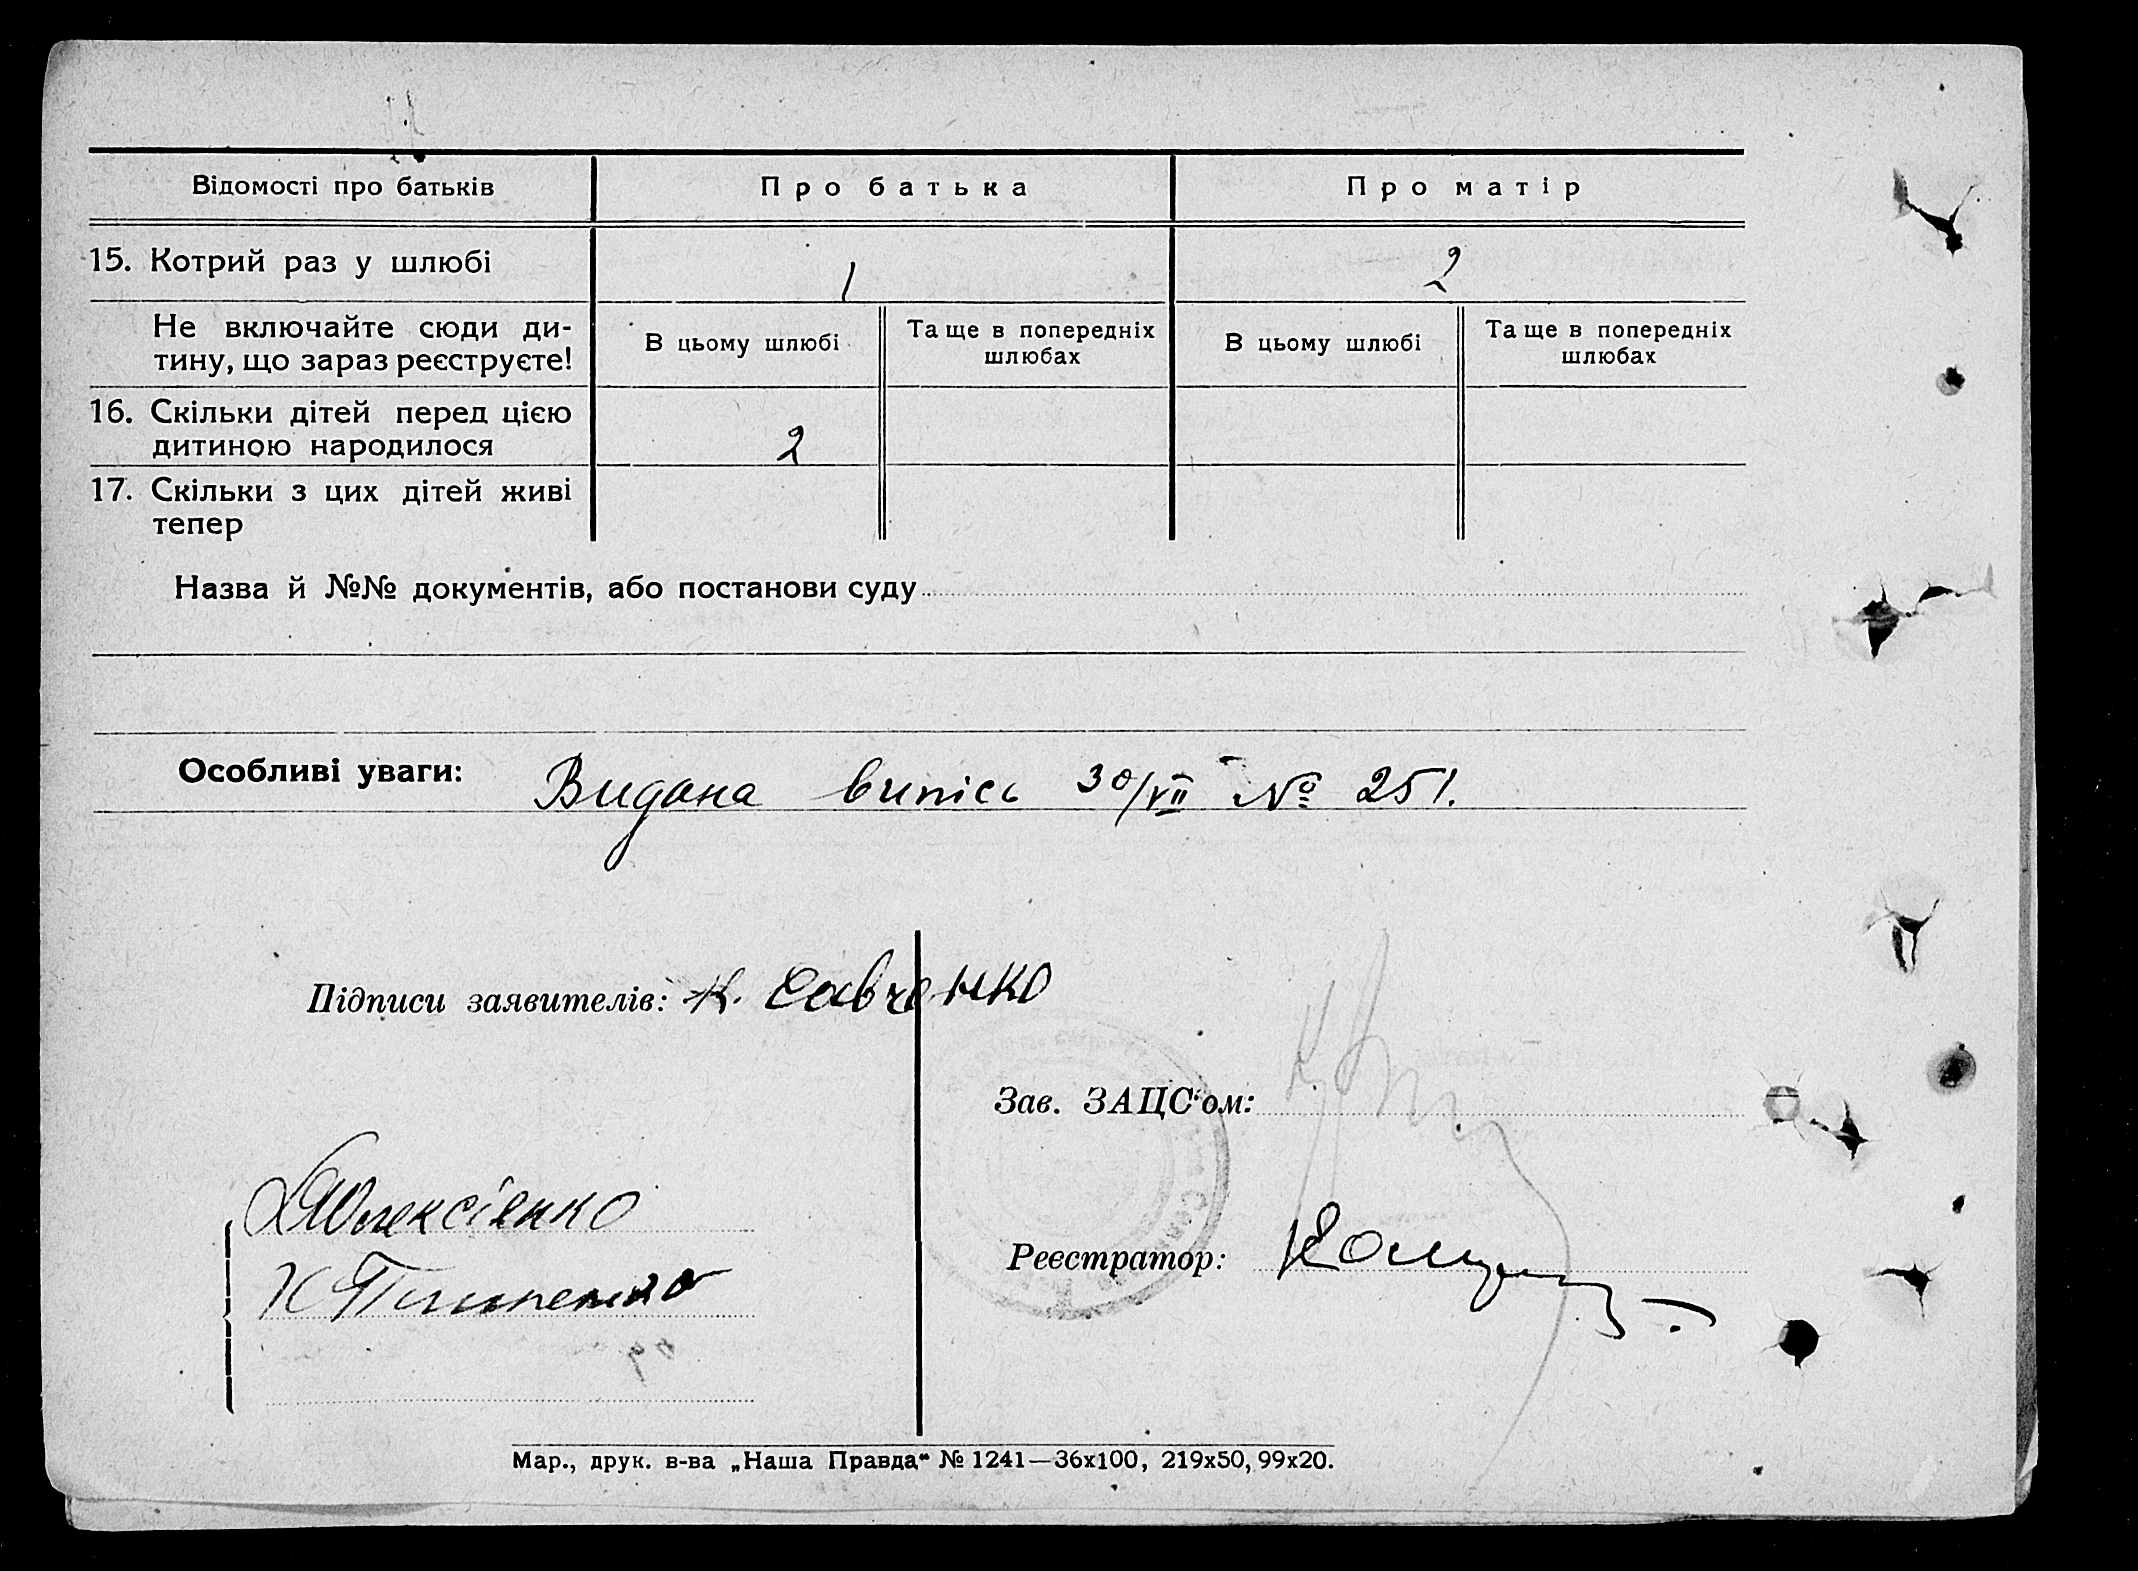 Відомості про батьків Про батька Про матір
15. Котрий раз у шлюбі 1 2
Не включайте сюди ди-
тину, що зараз реєструєте!
В цьому шлюбі Та ще в попередніх
шлюбах
В цьому шлюбі Та ще в попередніх
шлюбах
16. Скільки дітей перед цією
дитиною народилося 2
17. Скільки з цих дітей живі
тепер
Назва й №№ документів, або постанови суду
Особливі уваги: Видана випісь 30/VII № 251.
Підписи заявителів: К. Савченко
Зав. ЗАЦС'ом:
Олексієнко
Реєстратор:
Мар., друк. в-ва „Наша Правда“ № 1241—36х100, 219х50, 99х20.